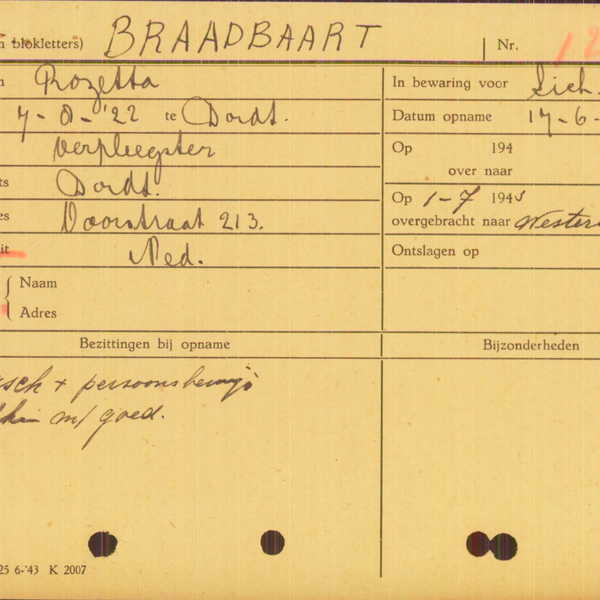 n blokletters) BRAADBAART Nr. 12
n Rozetta In bewaring voor Sich.
7-8-'22 te Dordt. Datum opname 17-6-
Verpleegster Op 194
over naar
ts Dordt.
es Voorstraat 213. Op 1-7 194
overgebracht naar Wester
it Ned. Ontslagen op
Naam
Adres
Bezittingen bij opname Bijzonderheden
sch + persoonsbewijs
m/ goed.
25 6-'43 K 2007